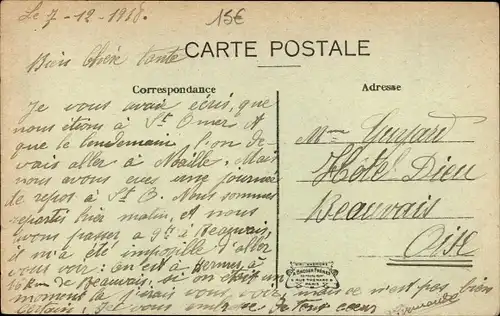 Le 7-12-1918.
15€
CARTE POSTALE
Bien Chère tante
Correspondance
Adresse
Je vous avais écris, que
nous étions à St Omer et
que le lendemain, l'on de-
vais aller à Noaille. Mais
nous avons eue une journée
de repos à St O. Nous sommes
repartis hier matin, et nous
vous passer a 9h à Beauvais,
il m'a été impossible d'aller
vous voir: on est à Hermes, à
16 km de Beauvais, si on était un
moment là j'irais vous voir, mais ce n'est pas bien
certain; Je vous embrasse de tout cœur
Mme Guyard
Hôtel Dieu
Beauvais
Oise
PARIS